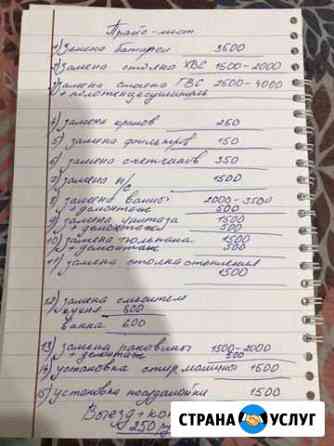 Прайс-лист
1) Замена батареи 3500
2) Замена стояка ХВС 1500-2000
3) Замена стояка ГВС 2500-4000
+ полотенцесушитель
4) замена кранов 250
5) замена фильтров 150
6) замена счетчиков 350
7) замена п/с 1500
8) замена ванны 2000-3500
+ демонтаж 500
9) замена унитаза 1500
+ демонтаж 500
10) замена тюльпана 1500
+ демонтаж 500
11) замена стояка отопления
1500
12) замена смесителя
кухня 600
ванна 600
13) замена раковины 1500-2000
+ демонтаж 500
14) установка стир машины 1500
15) установка 1500
Выезд +
250
СТРАНА УСЛУГ